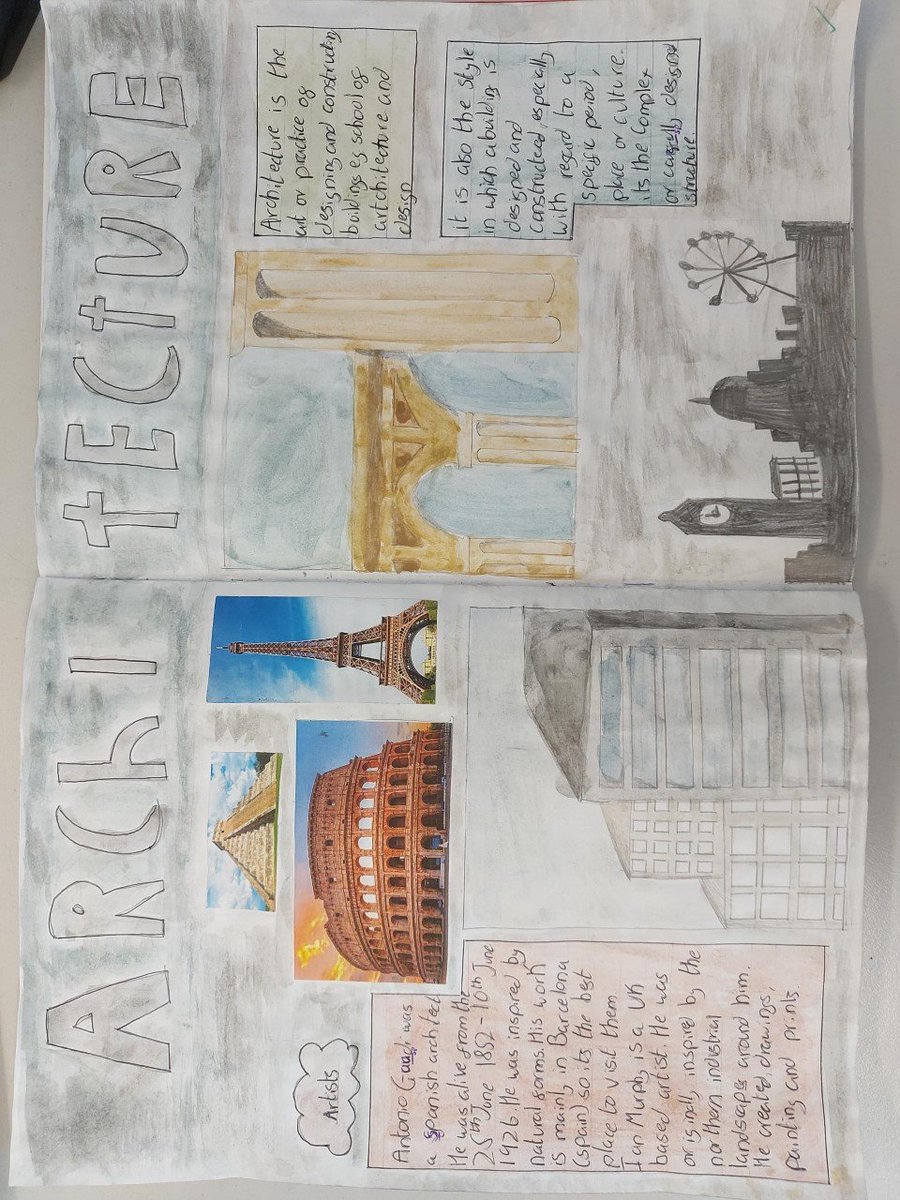 ARChI tECtURE
Artists
Antonio Gaudi was
a spanish architec
He was alive from the
25th June 1852 - 10th June
1926. He was inspired by
natural forms. His work
is mainly in Barcelona
(spain) so its the best
place to visit them
Ian Murphy is a UK
based artist. He was
originally inspired by the
northern industrial
landscapes around him.
He created drawings,
painting and prints
Architecture is the
art or practice of
designing and constructing
buildings eg school of
artchitecture and
design
it is also the style
in which a building is
designed and
constructed especially
with regard to a
specific period,
place or culture.
its the complex
or carefully designed
structure